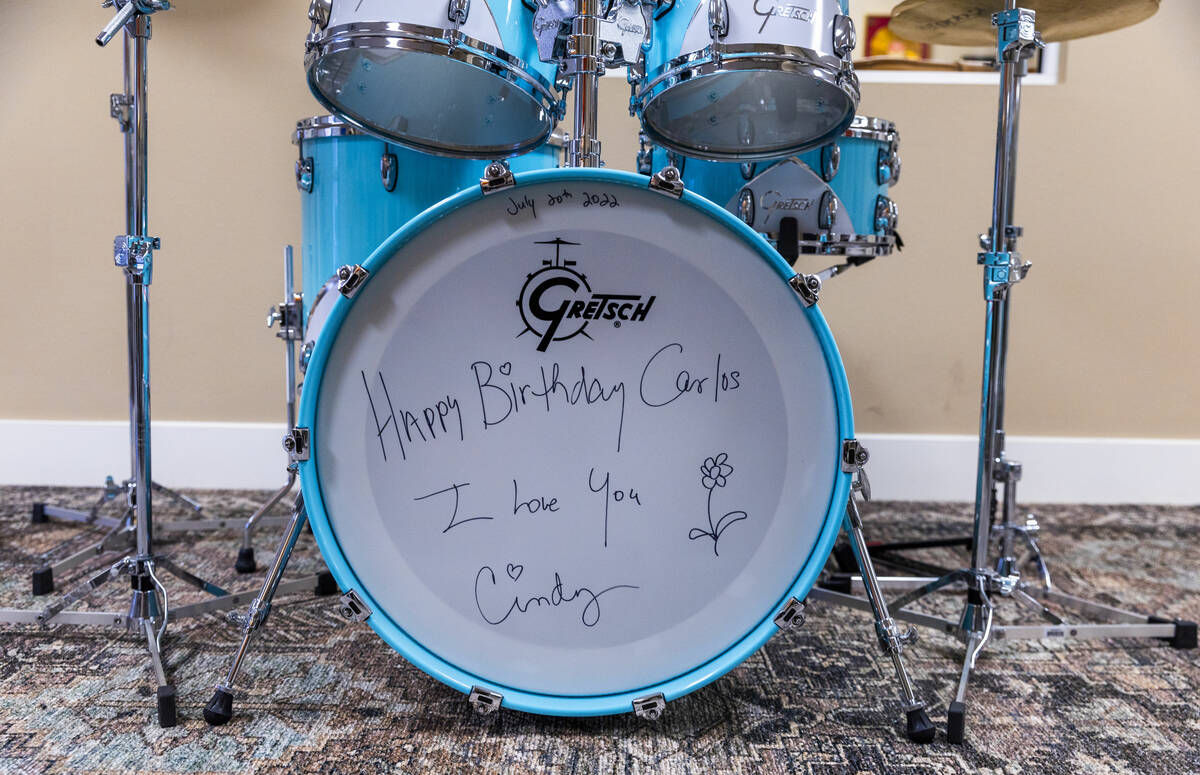 GRETSCH
GRETSCH
GRETSCH
July 20th 2022
GRETSCH®
Happy Birthday Carlos
I Love You
Cindy